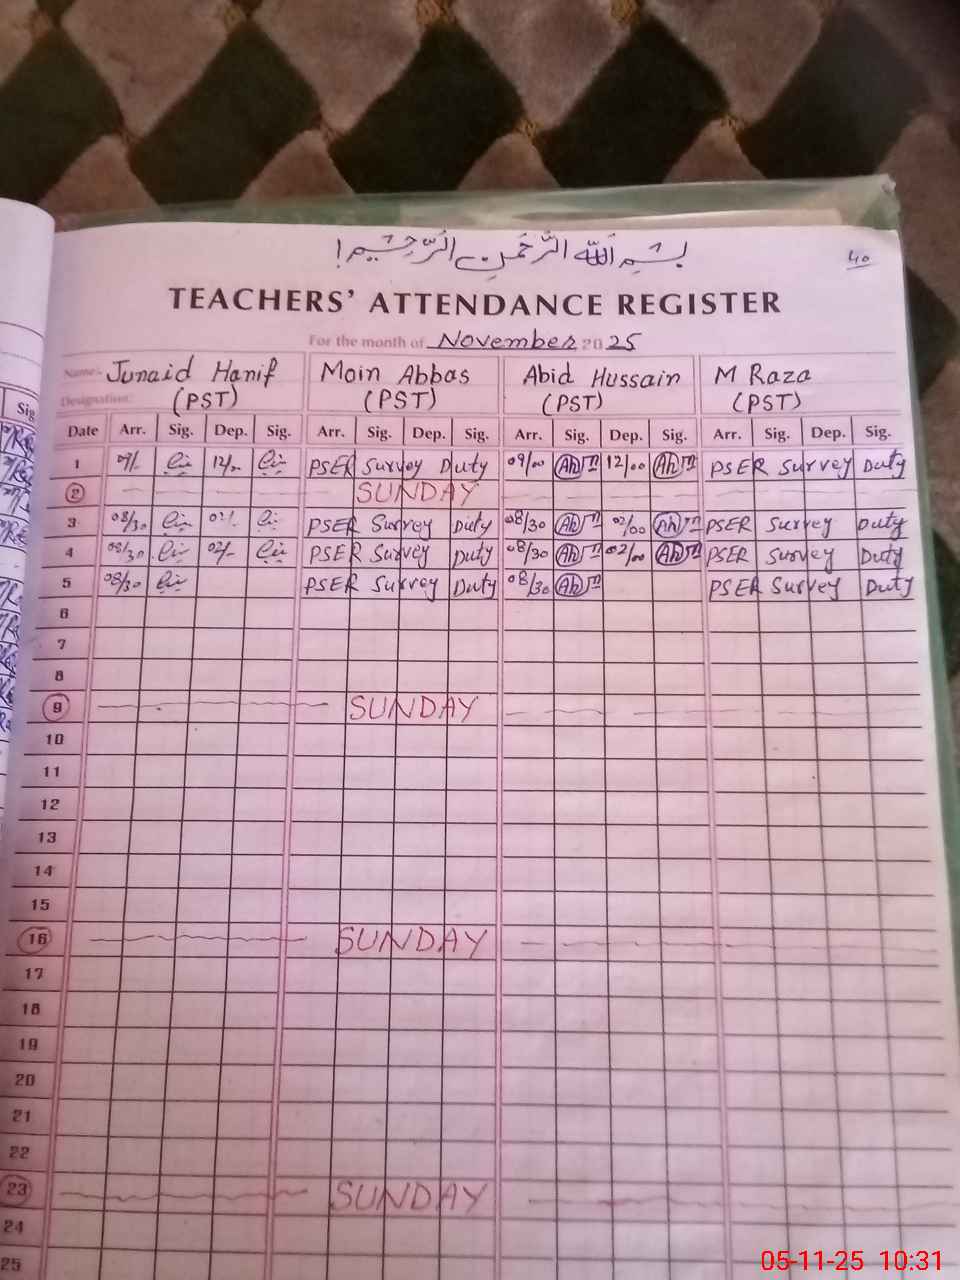 بِسْمِ اللّٰهِ الرَّحْمٰنِ الرَّحِيْمِ!
40
TEACHERS' ATTENDANCE REGISTER
For the month of November 2025
Name:- Junaid Hanif Moin Abbas Abid Hussain M Raza
Designation: (PST) (PST) (PST) (PST)
Sig
Date Arr. Sig. Dep. Sig. Arr. Sig. Dep. Sig. Arr. Sig. Dep. Sig. Arr. Sig. Dep. Sig.
1 09/- 12/.. PSER Survey Duty 09/00 12/00 PSER Survey Duty
2 SUNDAY
3 08/30 02/. PSER Survey Duty 08/30 02/00 PSER Survey Duty
4 08/30 02/- PSER Survey Duty 08/30 02/00 PSER Survey Duty
5 08/30 PSER Survey Duty 08/30 PSER Survey Duty
6
7
8
9 SUNDAY
10
11
12
13
14
15
16 SUNDAY
17
18
19
20
21
22
23 SUNDAY
24
25
05-11-25 10:31